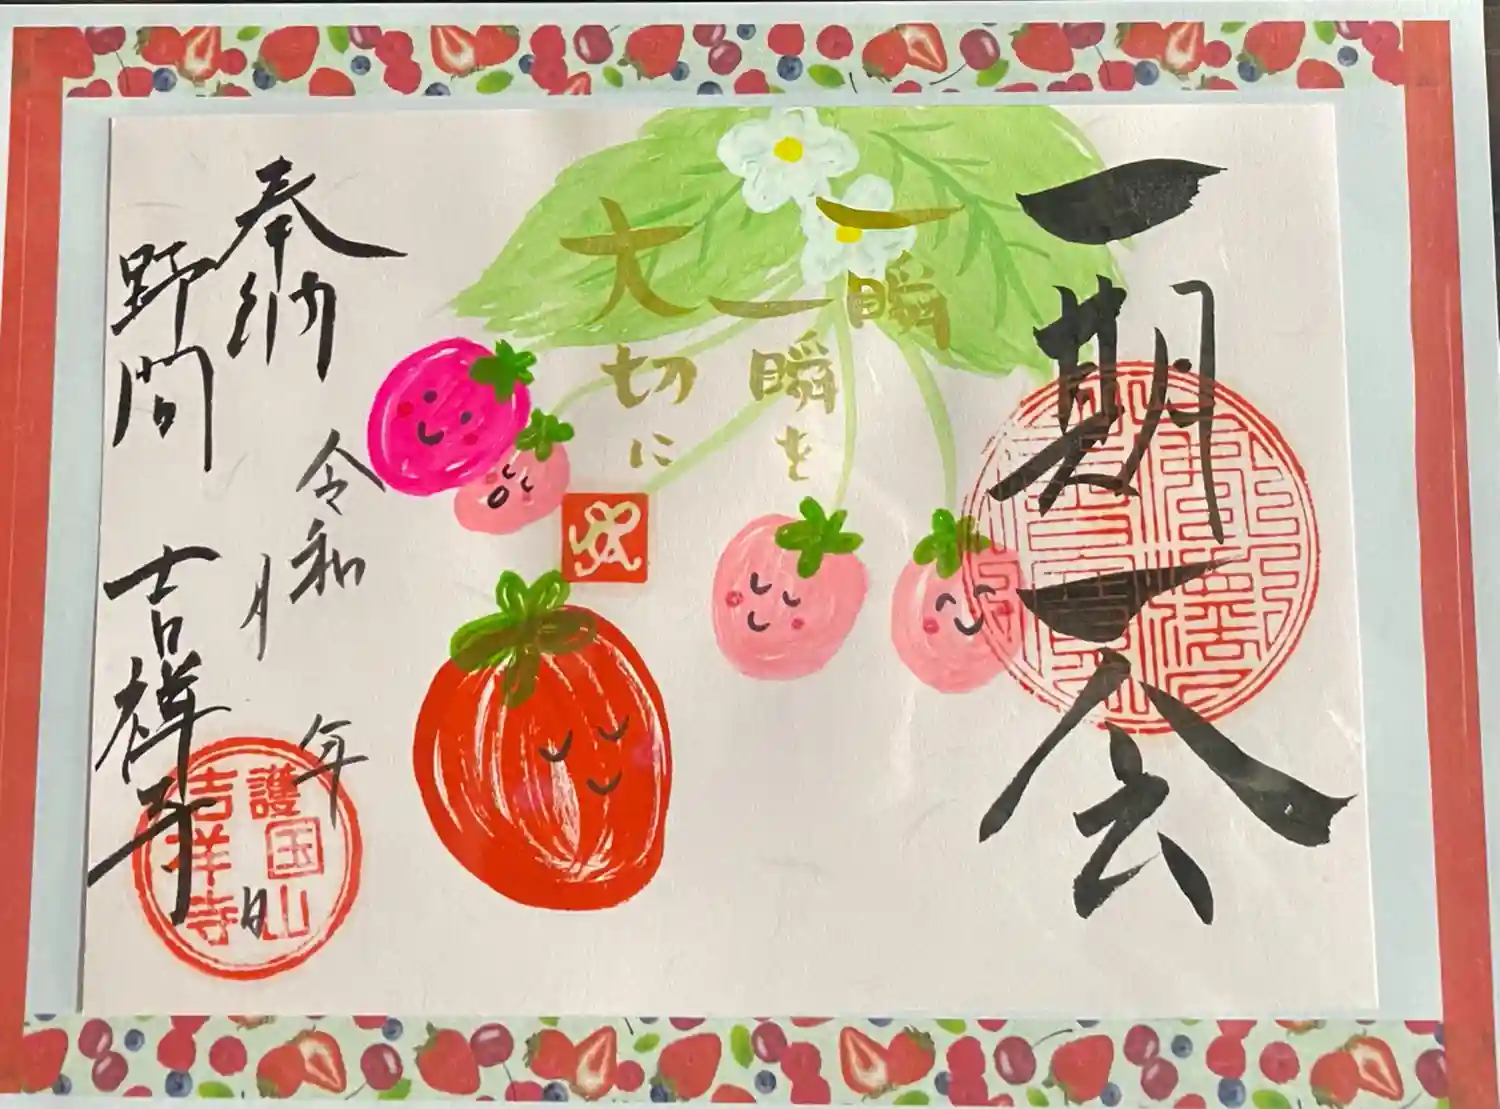 一期一会
一瞬
一瞬を
大切に
奉納
令和　年
月
日
野間
吉祥寺
護国山
吉祥寺